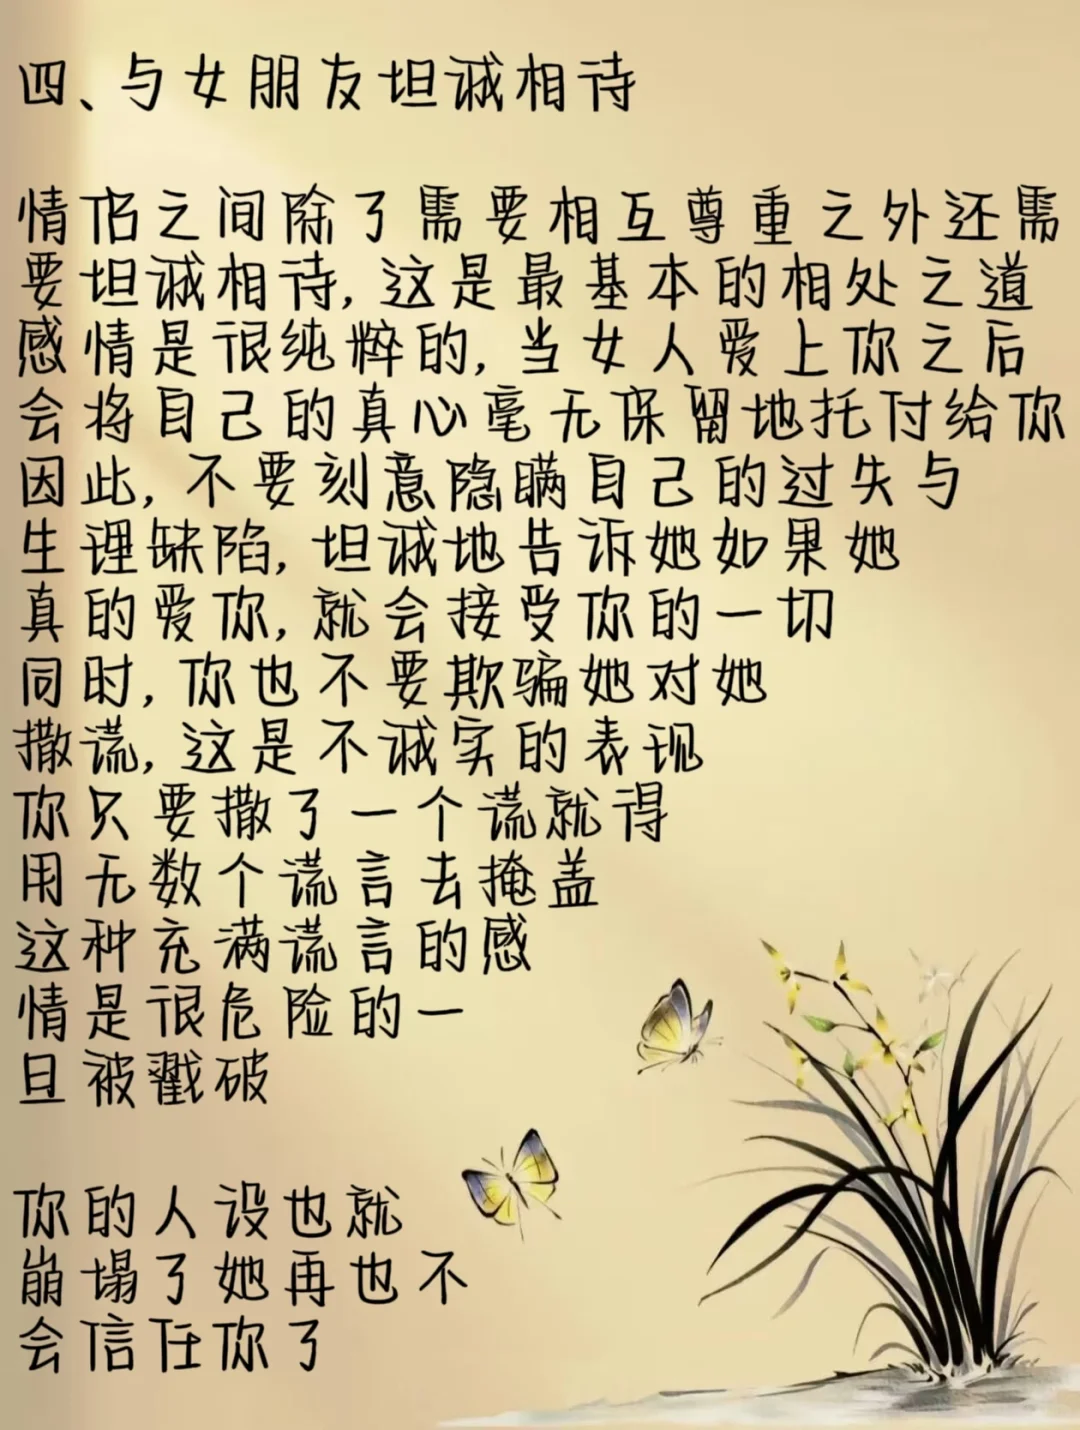 四、与女朋友坦诚相待
情侣之间除了需要相互尊重之外还需
要坦诚相待,这是最基本的相处之道
感情是很纯粹的,当女人爱上你之后
会将自己的真心毫无保留地托付给你
因此,不要刻意隐瞒自己的过失与
生理缺陷,坦诚地告诉她如果她
真的爱你,就会接受你的一切
同时,你也不要欺骗她对她
撒谎,这是不诚实的表现
你只要撒了一个谎就得
用无数个谎言去掩盖
这种充满谎言的感
情是很危险的一
旦被戳破
你的人设也就
崩塌了她再也不
会信任你了